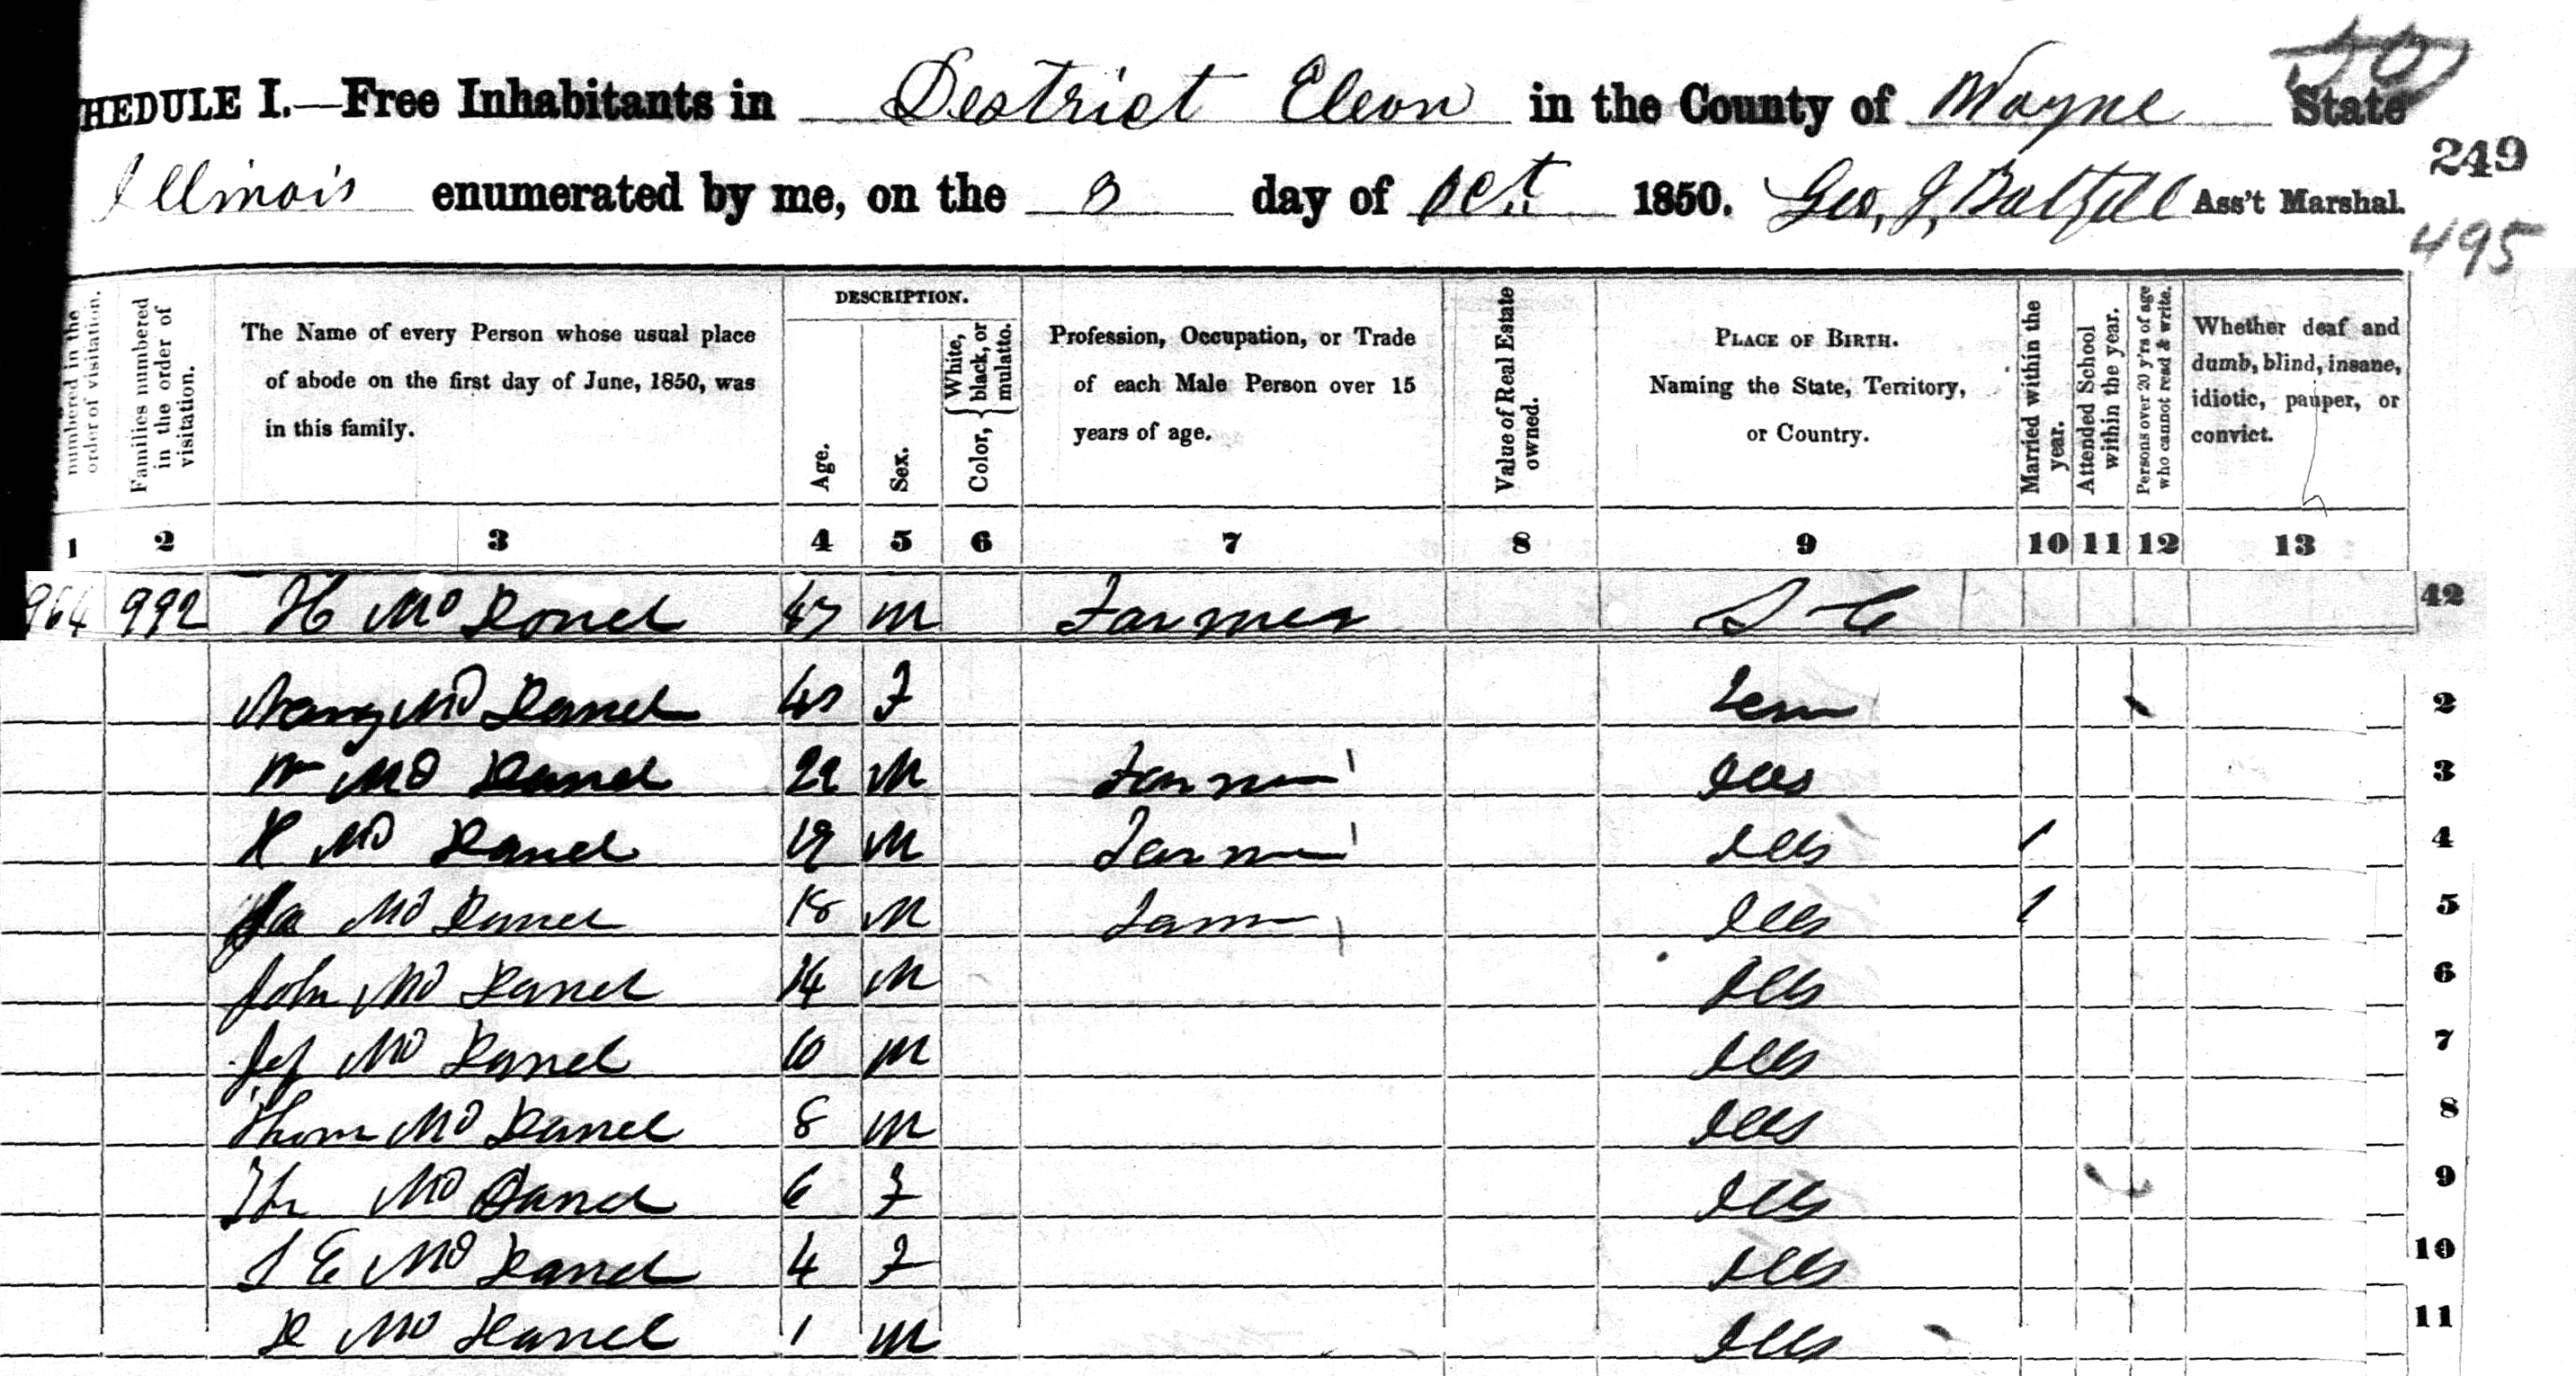 HEDULE I.—Free Inhabitants in Destrict Eleon in the County of Wayne State
50
249
Illinois enumerated by me, on the 3 day of Oct. 1850. Geo, J, Baltzell Ass't Marshal.
495
numbered in the order of visitation.
Families numbered in the order of visitation.
The Name of every Person whose usual place
of abode on the first day of June, 1850, was
in this family.
DESCRIPTION.
Age.
Sex.
Color, { White, black, or mulatto.
Profession, Occupation, or Trade
of each Male Person over 15
years of age.
Value of Real Estate owned.
PLACE OF BIRTH.
Naming the State, Territory,
or Country.
Married within the year.
Attended School within the year.
Persons over 20 y'rs of age who cannot read & write.
Whether deaf and
dumb, blind, insane,
idiotic, pauper, or
convict.
1 2 3 4 5 6 7 8 9 10 11 12 13
964 992 H McDonel 47 M Farmer S C 42
Nancy McDanel 40 F Tenn 2
Wm McDanel 22 M Farm 1 Ills 3
H McDanel 19 M Farm 1 Ills 1 4
Ja McDanel 18 M Farm 1 Ills 1 5
John McDanel 14 M Ills 6
Jef McDanel 10 M Ills 7
Thom McDanel 8 M Ills 8
McDanel 6 F Ills 9
S E McDanel 4 F Ills 10
R McDanel 1 M Ills 11